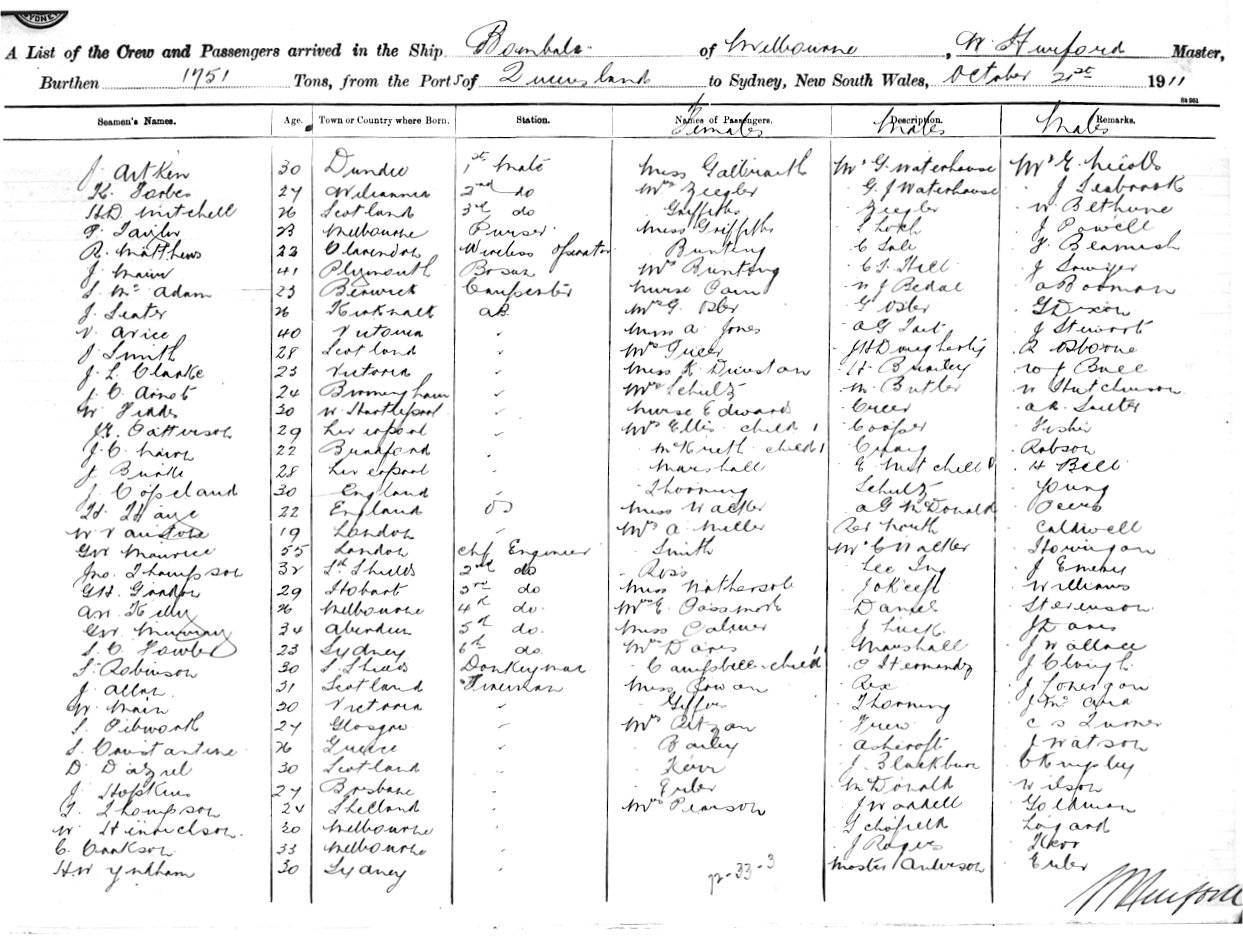 SYDNEY
A List of the Crew and Passengers arrived in the Ship Bombala of Melbourne, W. Hurford Master,
Burthen 1751 Tons, from the Ports of Queensland to Sydney, New South Wales, October 21st 1911
Seamen's Names. Age. Town or Country where Born. Station. Names of Passengers. Description. Remarks.
Females Males Males
J. Aitken 30 Dundee 1st Mate Miss Galbraith Mr G. Waterhouse Mr E. Nicolls
K. Forbes 27 2nd do Mrs Ziegler G J Waterhouse J Seabrook
H.D. Mitchell 26 Scotland 3rd do Griffiths Ziegler W Bethune
P. Taylor 23 Melbourne Purser Miss Griffiths J Powell
R. Matthews 22 Clarendon Wireless Operator Bunting C Sale Beamish
J. Mair 41 Plymouth Bosun Mrs Bunting C S Hill J Sawyer
S. Mc Adam 23 Berwick Carpenter Nurse Cain W J Bedal A Boorman
J. Slater 26 Kirkwall AB Mrs G. Osler G Osler G Dixon
V. Arice 40 Victoria Miss A. Jones A G Tait J Stewart
J. Smith 28 Scotland Mrs Greer J H Daugherty R Osborne
J. L. Clarke 23 Victoria Miss K Dunstan H Brumley W J Bull
J. C. Arnot 24 Birmingham Mrs Schultz M. Butler W Hutchinson
W. Fiddes 30 W. Hartlepool Nurse Edwards Creer A R. Salter
J.E. Patterson 29 Liverpool Mrs Ellis child 1 Cooper Fisher
J. C. Nairn 22 Bradford McKeith child 1 Craig Robson
J Burke 28 Liverpool Marshall E Mitchell H Bell
J. Copeland 30 England Thorning Schultz Young
H. Haye 22 England OS Miss Walker A G McDonald Peers
W Vanstone 19 London Mrs A Miller Rev North Caldwell
GW Maurice 55 London Chf Engineer Smith Mr C Walker
Jno. Thompson 32 Sth Shields 2nd do Ross Lee Ing J Emery
GH. Gordon 29 Hobart 3rd do Miss Nothersole J O'Keefe Williams
AW. Kelly 26 Melbourne 4th do. Mrs E. Passmore Daniel Stevenson
GW. Murray 34 Aberdeen 5th do. Miss Palmer J Luck J Dares
S. C. Fowler 23 Sydney 6th do. Mrs Dares 1 Marshall J Wallace
S. Robinson 30 S. Shields Donkeyman Campbell child C Hernandz J Clough
J. Allan 31 Scotland Fireman Miss Cowan Rex J Lonergan
W. Main 30 Victoria Thorning J Mc
S. Pibworth 27 Glasgow Mrs C S Turner
S. Constantine 26 Greece Bailey Ashcroft J Watson
D. Dalziel 30 Scotland Kerr J Blackburn C Kingsley
J. Hopkins 27 Brisbane Euler McDonald Wilson
G. Thompson 24 Shetland Mrs Pearson J Waddell Goldman
W. Hendrickson. 20 Melbourne Schofield
C. Cookson 33 Melbourne J Rogers Kerr
HW Yndham 30 Sydney Master Anderson Euler
72-33-3
W Hurford